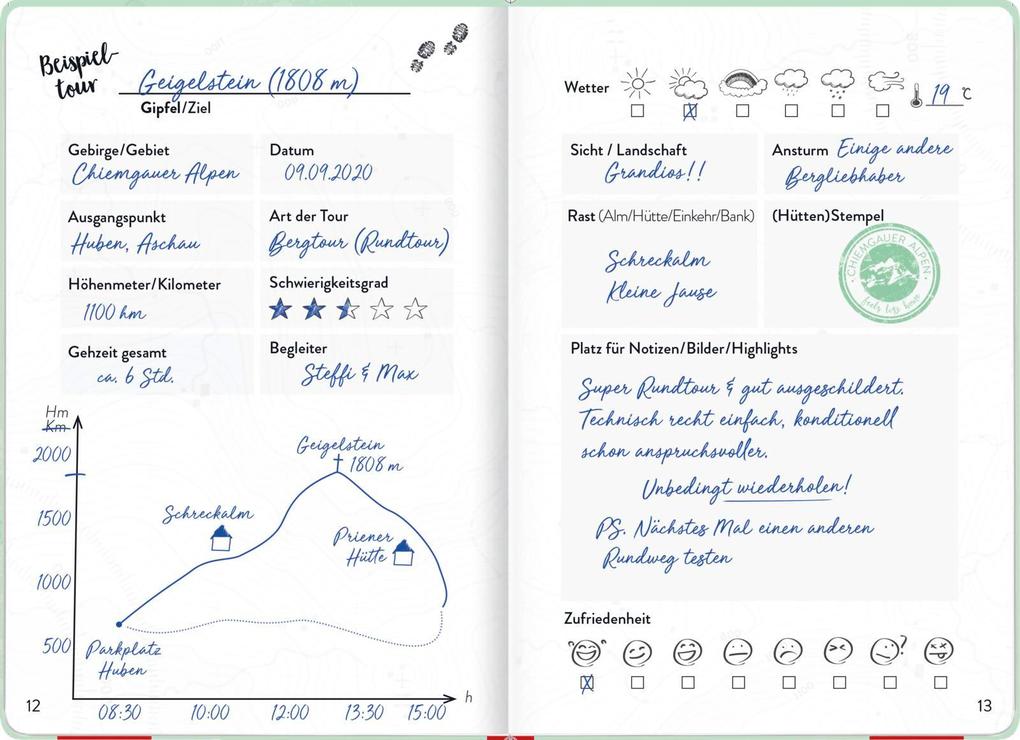 Beispiel-
tour
Geigelstein (1808 m)
Gipfel/Ziel
Gebirge/Gebiet
Chiemgauer Alpen
Datum
09.09.2020
Ausgangspunkt
Huben, Aschau
Art der Tour
Bergtour (Rundtour)
Höhenmeter/Kilometer
1100 hm
Schwierigkeitsgrad
Gehzeit gesamt
ca. 6 Std.
Begleiter
Steffi & Max
Hm
Km
2000
1500
1000
500
Geigelstein
1808 m
Schreckalm
Priener
Hütte
Parkplatz
Huben
h
08:30 10:00 12:00 13:30 15:00
12
Wetter
19 °C
Sicht / Landschaft
Grandios!!
Ansturm Einige andere
Bergliebhaber
Rast (Alm/Hütte/Einkehr/Bank)
Schreckalm
Kleine Jause
(Hütten)Stempel
CHIEMGAUER ALPEN
Platz für Notizen/Bilder/Highlights
Super Rundtour & gut ausgeschildert.
Technisch recht einfach, konditionell
schon anspruchsvoller.
Unbedingt wiederholen!
PS. Nächstes Mal einen anderen
Rundweg testen
Zufriedenheit
?
13